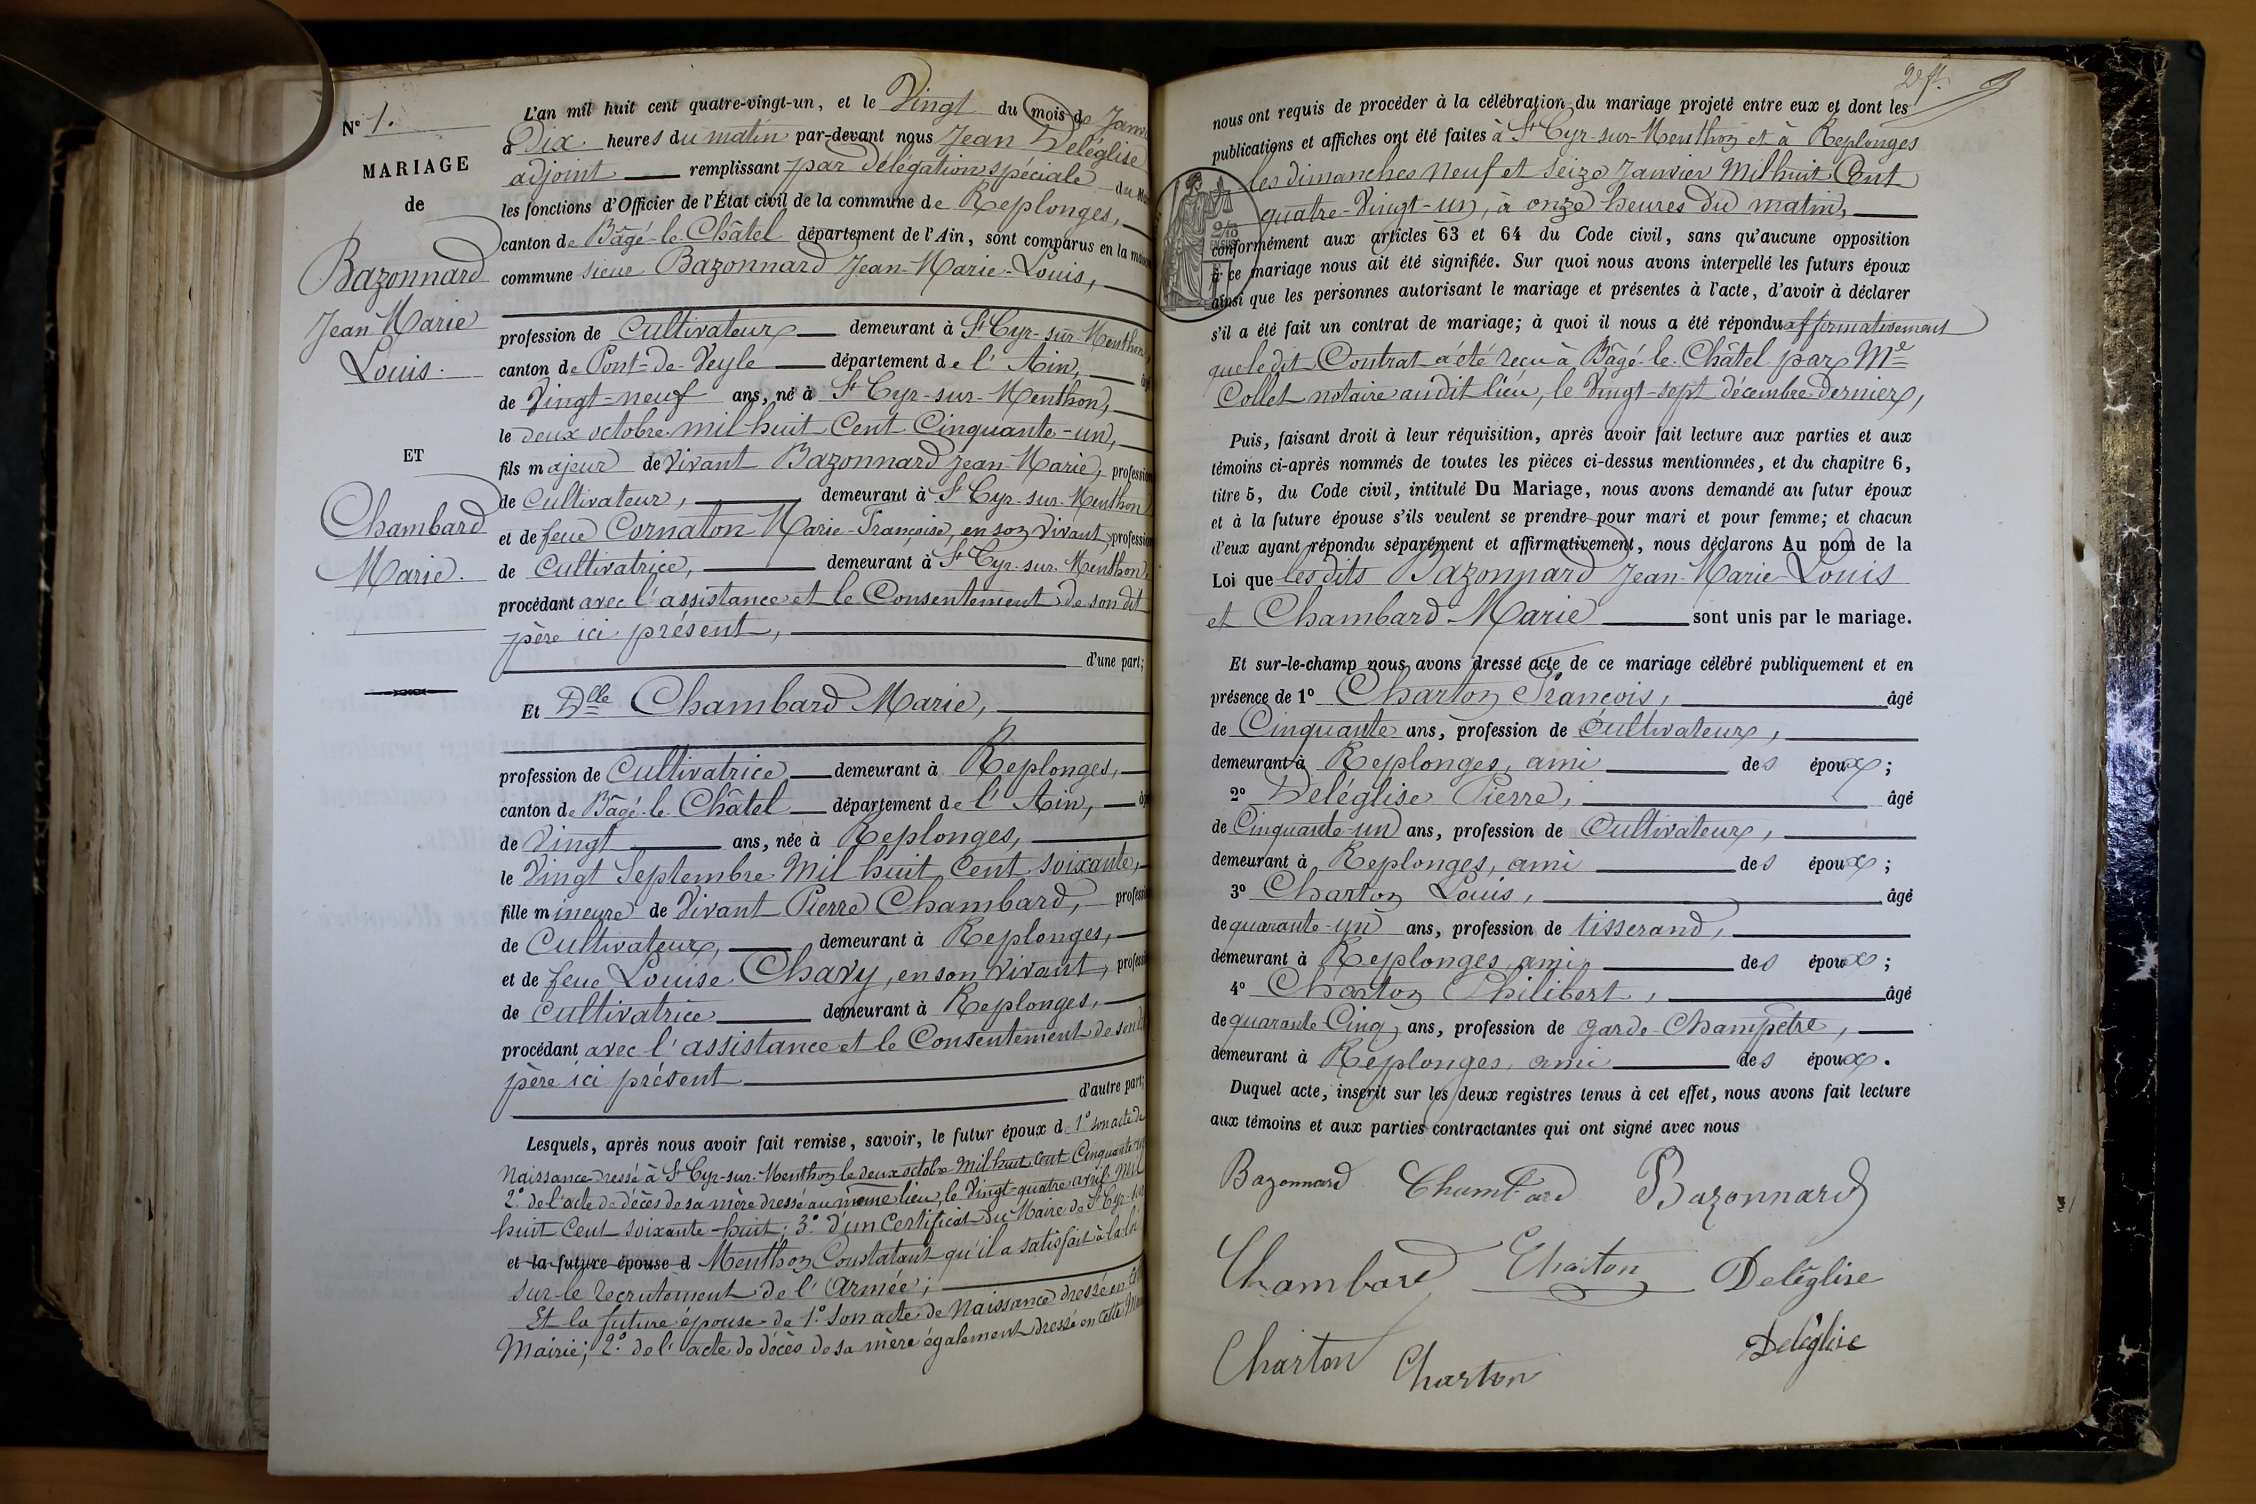 N° 1.
MARIAGE
de
Bazonnard
Jean Marie
Louis.
ET
Chambard
Marie.
L'an mil huit cent quatre-vingt-un, et le Vingt du mois de Janv
à Dix heures du matin par-devant nous Jean Deléglise
adjoint remplissant par délégation spéciale du
les fonctions d'Officier de l'État civil de la commune de Replonges,
canton de Bâgé-le-Châtel département de l'Ain, sont comparus en la mais
commune sieur Bazonnard Jean-Marie-Louis,
profession de Cultivateur demeurant à St Cyr-sur-Menthon,
canton de Pont-de-Veyle département de l'Ain, âgé
de Vingt-neuf ans, né à St Cyr-sur-Menthon,
le deux octobre mil huit Cent Cinquante-un,
fils majeur de vivant Bazonnard Jean-Marie, profession
de Cultivateur, demeurant à St Cyr-sur-Menthon
et de feue Cornaton Marie-Françoise, en son vivant, profession
de Cultivatrice, demeurant à St Cyr-sur-Menthon,
procédant avec l'assistance et le Consentement de son dit
père ici présent,
d'une part;
Et Dlle Chambard Marie,
profession de Cultivatrice demeurant à Replonges,
canton de Bâgé-le-Châtel département de l'Ain, âg
de Vingt ans, née à Replonges,
le Vingt Septembre Mil huit Cent soixante,
fille mineure de Vivant Pierre Chambard, profession
de Cultivateur, demeurant à Replonges,
et de feue Louise Chavy, en son vivant, profession
de Cultivatrice demeurant à Replonges,
procédant avec l'assistance et le Consentement de son d
père ici présent
d'autre part;
Lesquels, après nous avoir fait remise, savoir, le futur époux de 1° son acte de
Naissance dressé à St Cyr-sur-Menthon le deux octobre Mil huit Cent Cinquante un
2° de l'acte de décès de sa mère dressé au même lieu, le Vingt-quatre avril Mil
huit Cent soixante-huit; 3° d'un Certificat du Maire de St Cyr-sur
et la future épouse d Menthon Constatant qu'il a satisfait à la loi
sur le recrutement de l'Armée;
Et la future épouse de 1° son acte de Naissance dressé en
Mairie; 2° de l'acte de décès de sa mère également dressé en cette M
2e ft.
nous ont requis de procéder à la célébration du mariage projeté entre eux et dont les
publications et affiches ont été faites à St Cyr-sur-Menthon et à Replonges
les dimanches Neuf et Seize Janvier Mil huit Cent
quatre-Vingt-un, à onze heures du matin,
conformément aux articles 63 et 64 du Code civil, sans qu'aucune opposition
à ce mariage nous ait été signifiée. Sur quoi nous avons interpellé les futurs époux
ainsi que les personnes autorisant le mariage et présentes à l'acte, d'avoir à déclarer
s'il a été fait un contrat de mariage; à quoi il nous a été répondu affirmativement
que le dit Contrat a été reçu à Bâgé-le-Châtel par Me
Collet notaire audit lieu, le Vingt-sept décembre dernier,
Puis, faisant droit à leur réquisition, après avoir fait lecture aux parties et aux
témoins ci-après nommés de toutes les pièces ci-dessus mentionnées, et du chapitre 6,
titre 5, du Code civil, intitulé Du Mariage, nous avons demandé au futur époux
et à la future épouse s'ils veulent se prendre pour mari et pour femme; et chacun
d'eux ayant répondu séparément et affirmativement, nous déclarons Au nom de la
Loi que lesdits Bazonnard Jean-Marie-Louis
et Chambard Marie sont unis par le mariage.
Et sur-le-champ nous avons dressé acte de ce mariage célébré publiquement et en
présence de 1° Charton François, âgé
de Cinquante ans, profession de Cultivateur,
demeurant à Replonges, ami des époux;
2° Deléglise Pierre, âgé
de Cinquante-un ans, profession de Cultivateur,
demeurant à Replonges, ami des époux;
3° Charton Louis, âgé
de quarante-un ans, profession de tisserand,
demeurant à Replonges, ami des époux;
4° Charton Philibert, âgé
de quarante Cinq ans, profession de garde-Champêtre,
demeurant à Replonges, ami des époux.
Duquel acte, inscrit sur les deux registres tenus à cet effet, nous avons fait lecture
aux témoins et aux parties contractantes qui ont signé avec nous
Bazonnard Chambard Bazonnard
Chambard Charton Deléglise
Deléglise
Charton Charton